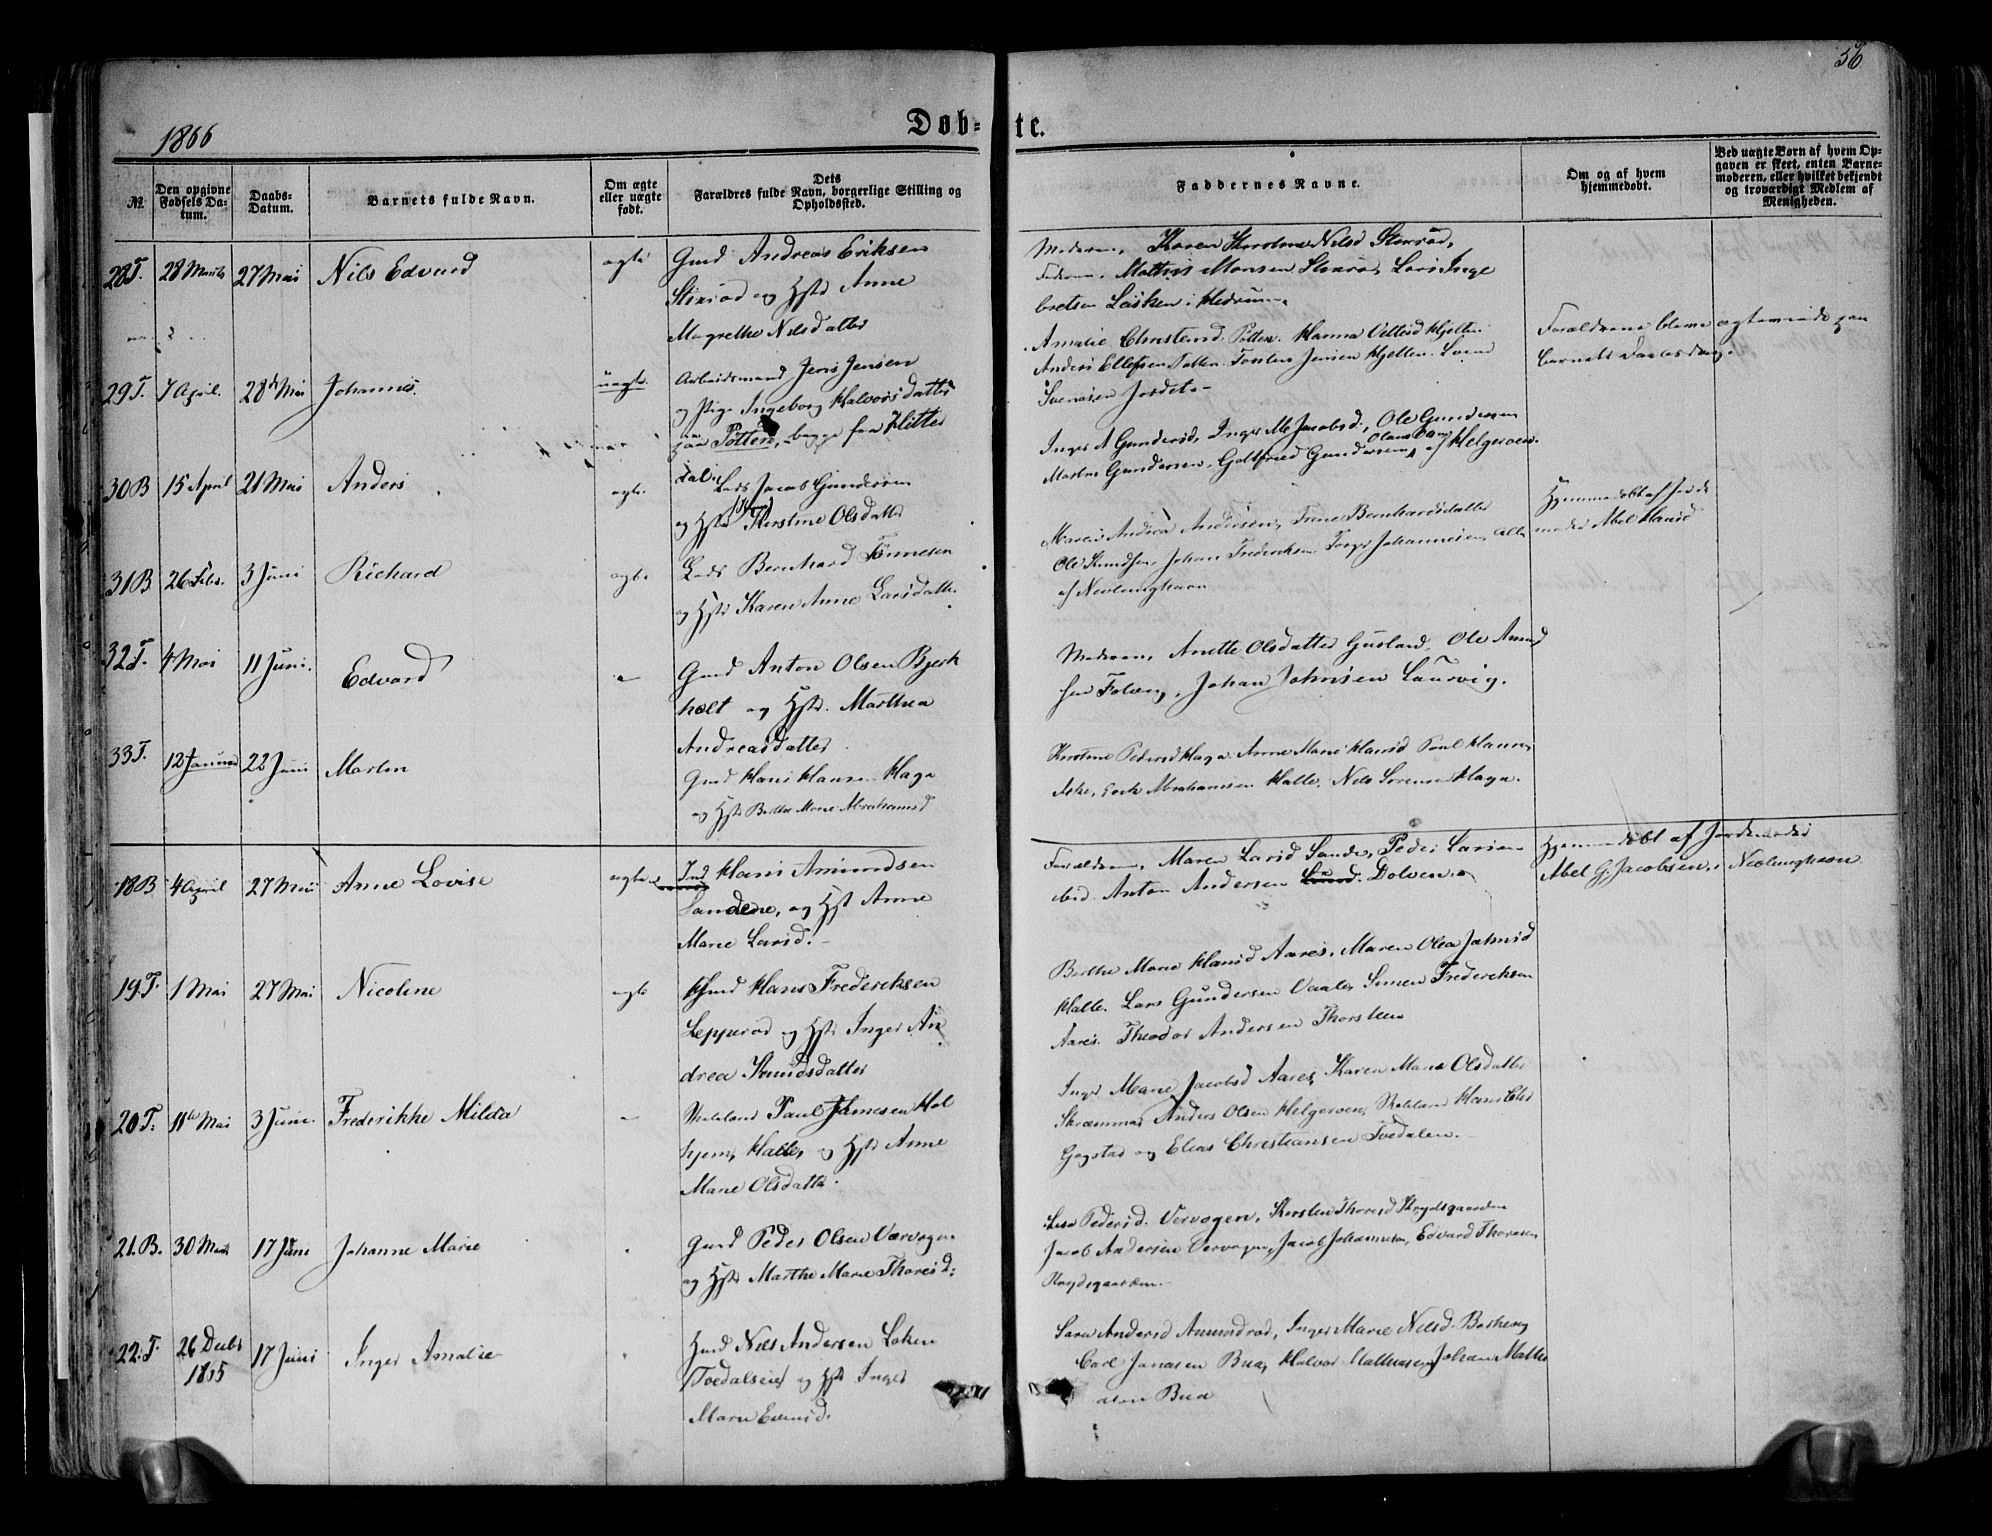 56
1866
Døb-te.
№.
Den opgivne Fødsels Datum.
Daabs-Datum.
Barnets fulde Navn.
Om ægte eller uægte født.
Dets Forældres fulde Navn, borgerlige Stilling og Opholdssted.
Faddernes Navne.
Om og af hvem hjemmedøbt.
Ved uægte Børn af hvem Opgaven er skeet, enten Barnemoderen, eller hvilket bekjendt og troværdigt Medlem af Menigheden.
28T. 28 Marts 27 Mai Nils Edvard ægte Gmd Andreas Eriksen
og Hst Anne
Magrethe Nilsdatter
Moderen, Karen Karoline Nilsd
Faderen, Mathis Monsen Lars Inge
bretsen i Hedrum
29T. 7 April 28de Mai Johannes uægte Arbeidsmand Jens Jensen
og Pige Ingeborg Halvorsdatter
paa Potten, begge fra Hitter
dal
Amalie Christensd Potten. Hanna Hjelten
Anders Ellefsen Potten Jensen Hjelten
Svensen Jordet
Forældrene bleve ægteviede paa
Barnets Daabsdag.
30B 15 April 21 Mai Anders ægte Lods Jacob Gundersen
og Hst Kirstine Olsdatter
Inger A Gundersd, Inger M Jacobsd, Ole Gundersen
Martin Gundersen, Gottfried Gundersen af Helgeroen
31B 26 Febr. 3 Juni Richard ægte Lods Bernhard Tønnesen
og Hst Karen Anne Larsdatter
Maren Andrea Andersen, Trine Bernhardsdatter
Ole Knudsen, Johan Frederiksen Johannesen, alle
af Nevlunghavn
Hjemmedøbt af Jorde
moder Abel Hansd
32T. 4 Mai 11 Juni. Edvard - Gmd Anton Olsen Bjerk
holt og Hst. Marthea
Andreasdatter
Moderen, Anette Olsdatter Gusland, Ole
sen Johan Johnsen Laurvig.
33T. 12 Januar 22 Juni Martin
Gmd Hans Hansen Haga
og Hst Berthe Marie Abrahamsd
Kirstine Pedersd Haga Anne Marie Hansd Paul Hansen
Aske, Abrahamsen Halle, Nils Sørensen Haga.
18B 4 April 27 Mai Anne Lovise ægte Ind Hans Amundsen
Sandene, og Hst Anne
Marie Larsd.
Forældrene, Maren Larsd Sande, Peder Larsen
ibid. Anton Andersen Dolven
Hjemmedøbt af Jordemoder
Abel G. Jacobsen, i Nevlunghavn
19T. 1 Mai 27 Mai Nicoline ægte Gmd Hans Frederiksen
Lepperød og Hst Inger An
drea Knudsdatter
Berthe Marie Hansd Aares, Maren Olea Johnsd
Halle. Lars Gundersen Vaale, Simen Frederiksen
Aares. Theodor Andersen Thorsteen
20T. 11te Mai 3 Juni. Frederikke Milda - Paul Hol
hjem, Halle, og Hst Anne
Marie Olsdatter.
Inger Marie Jacobsd Aares, Karen Marie Olsdatter
Anders Olsen Helgeroen, Hans
Gogstad og Elias Christiansen Tvedalen.
21.B. 30 Marts 17 Juni Johanne Marie
Gmd Peder Olsen Værvagen
og Hst Marthe Marie Thoresd:
Pedersd. Vervagen, Kirsten Thoresd
Jacob Andersen Vervagen, Jacob Johannesen, Edvard Thoresen
22.T. 26 Decbr 1865 17 Juni Inger Amalie
Hmd Nils Andersen
Tvedalseie og Hst Inger
Marie
Andersd Inger Marie Nilsd.
Carl Jonasen Bua, Halvor Johan
Bua